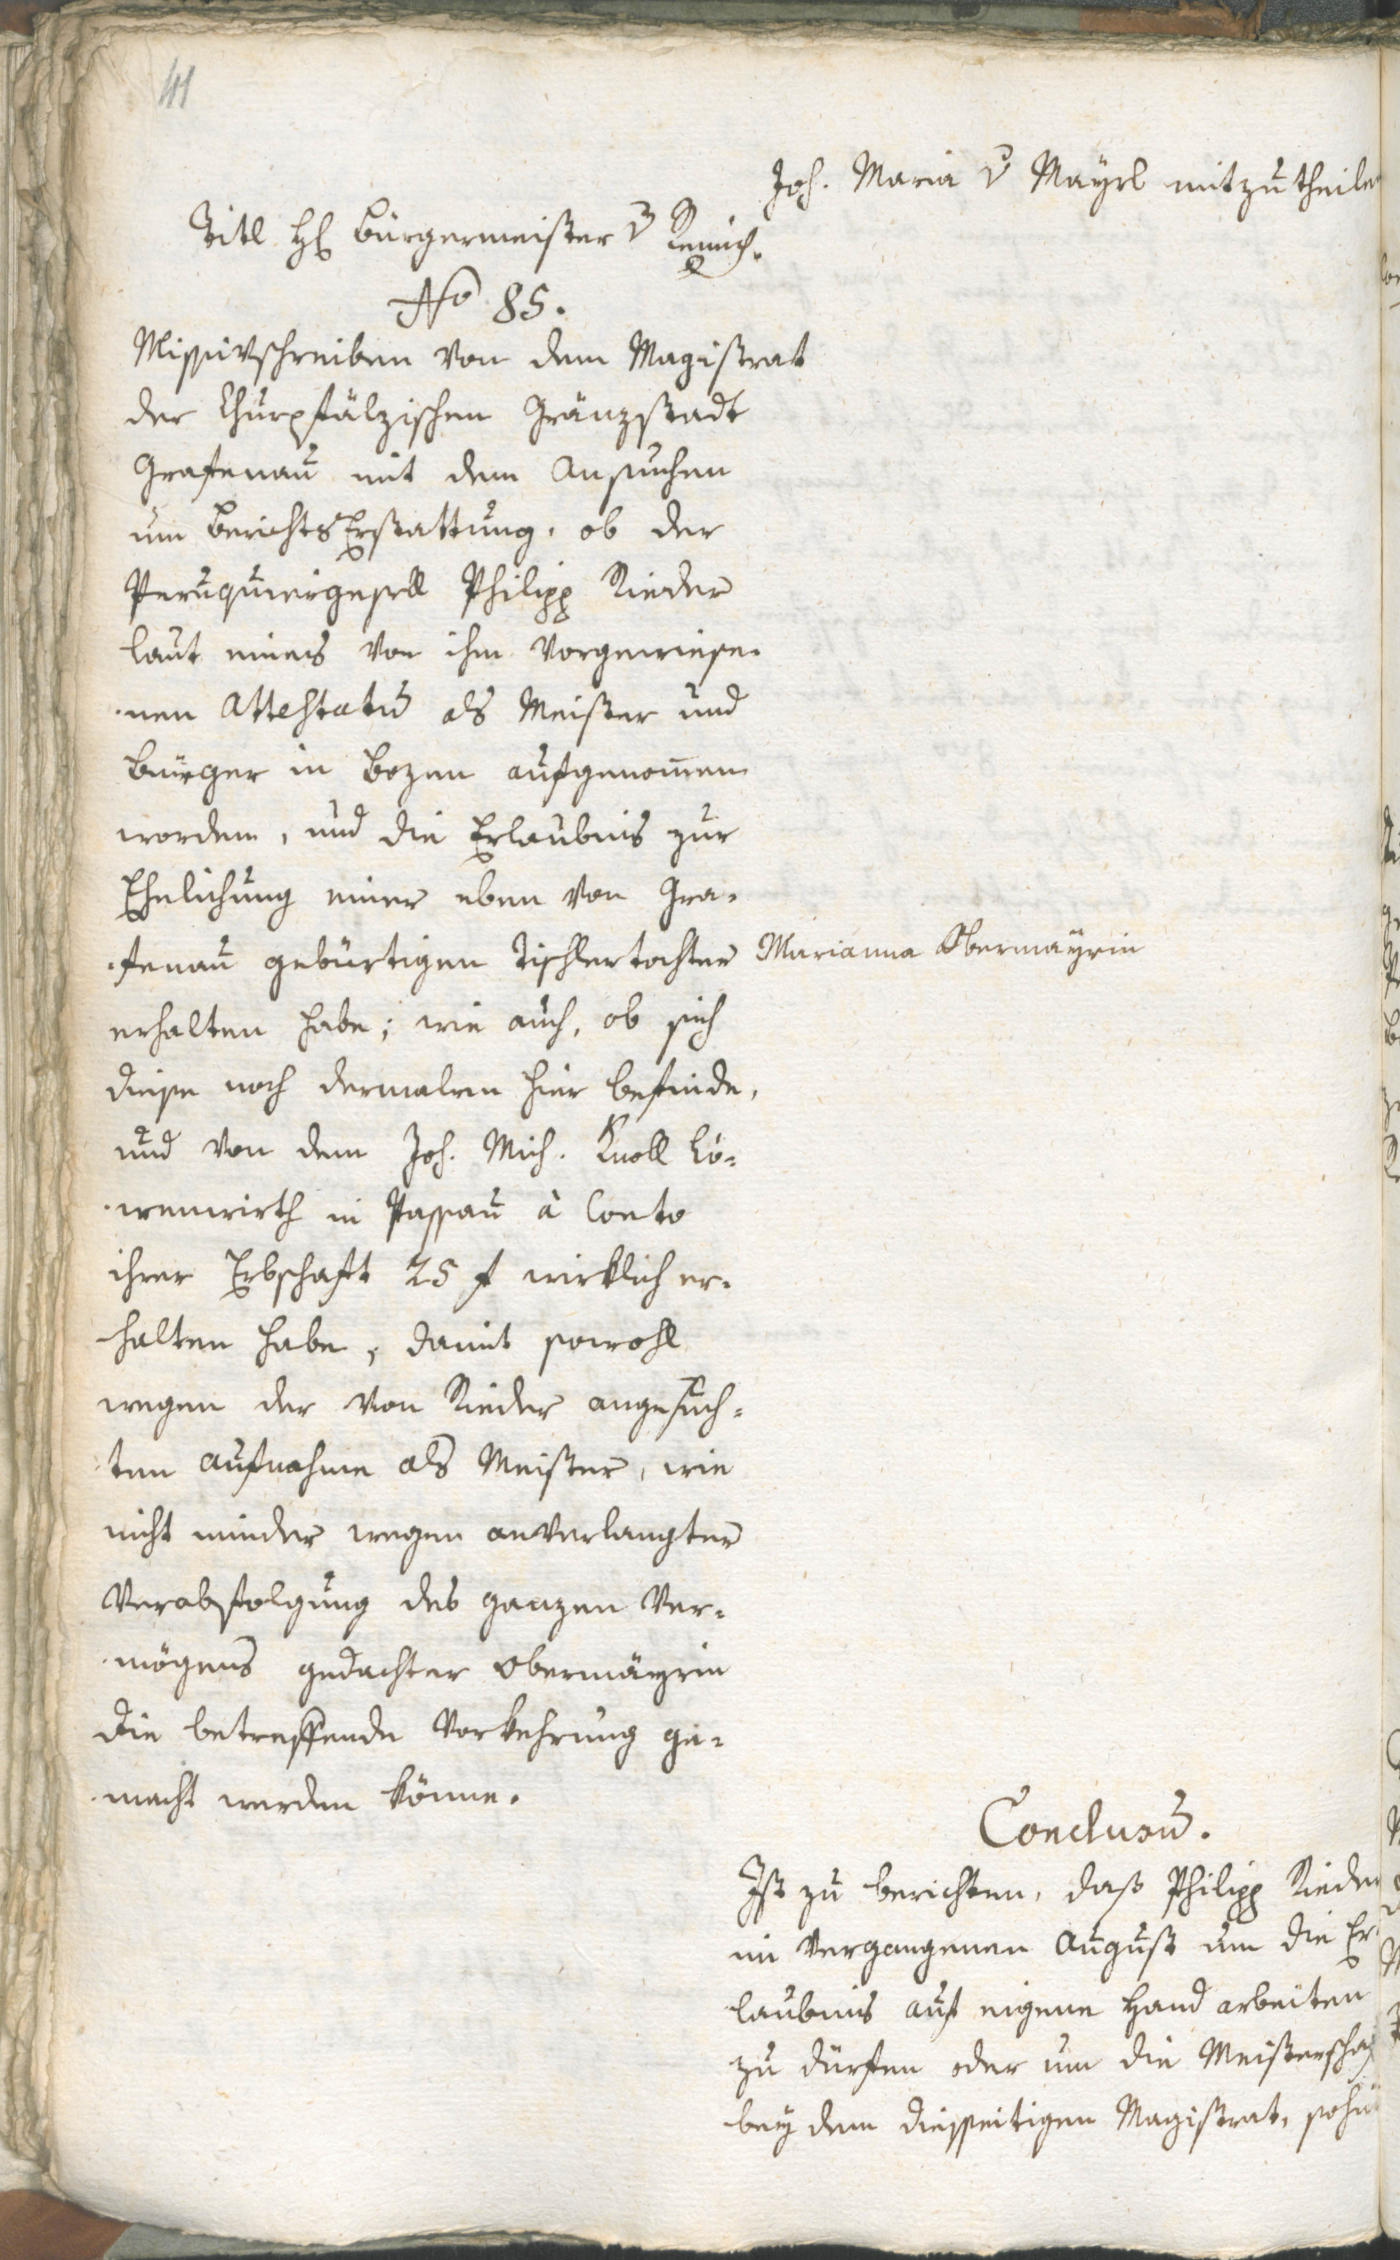 41
Joh. Maria v Mayrl mitzutheile
Titl H Bürgermeister v
No 85.
Missivschreiben von dem Magistrat
der Churpfälzischen Gränzstadt
Grafenau mit dem Ansuchen
um BerichtsErstattung, ob der
Peruquiergesell Philipp Rieder
laut eines von ihm vorgewiese-
-nen Attestatu als Meister und
Bürger in Bozen aufgenomen
worden, und die Erlaubnis zur
Ehelichung einer eben von Gra-
-fenau gebürtigen Tischlertochter Marianna Obermayrin
erhalten habe; wie auch, ob sich
diese noch dermalen hier befinde,
und von dem Joh. Mich. Knoll Lö-
-wenwirth in Passau à Conto
ihrer Erbschaft 25 f wirklich er-
-halten habe, damit sowohl
wegen der von Rieder angesuch-
-ten Aufnahme als Meister, wie
nicht minder wegen anverlangter
Verabfolgung des ganzen Ver-
-mögens gedachter Obermäyrin
die betreffende Vorkehrung ge-
-macht werden könne.
Conclusu.
Ist zu berichten, daß Philipp Rieder
im vergangenen August um die Er-
laubnis auf eigene Hand arbeiten
zu dürfen oder um die Meisterschaf
bey dem diesseitigen Magistrat,